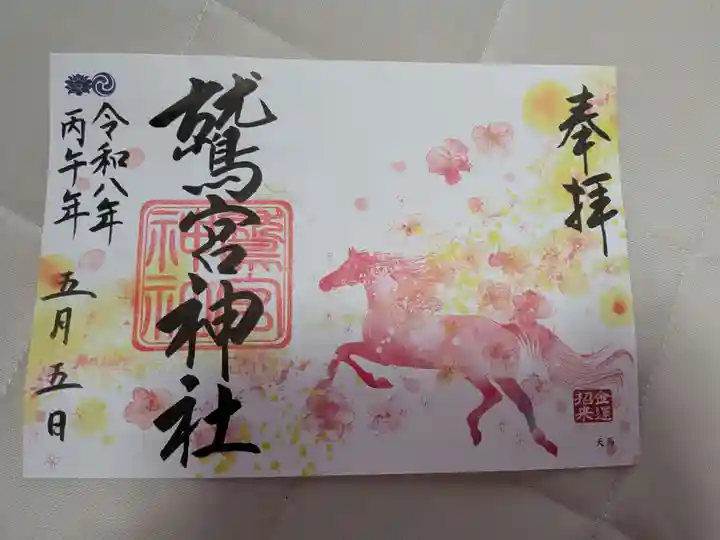 奉拝
金運
招来
天馬
鷲宮神社
鷲宮
神社
令和八年
丙午年
五月五日